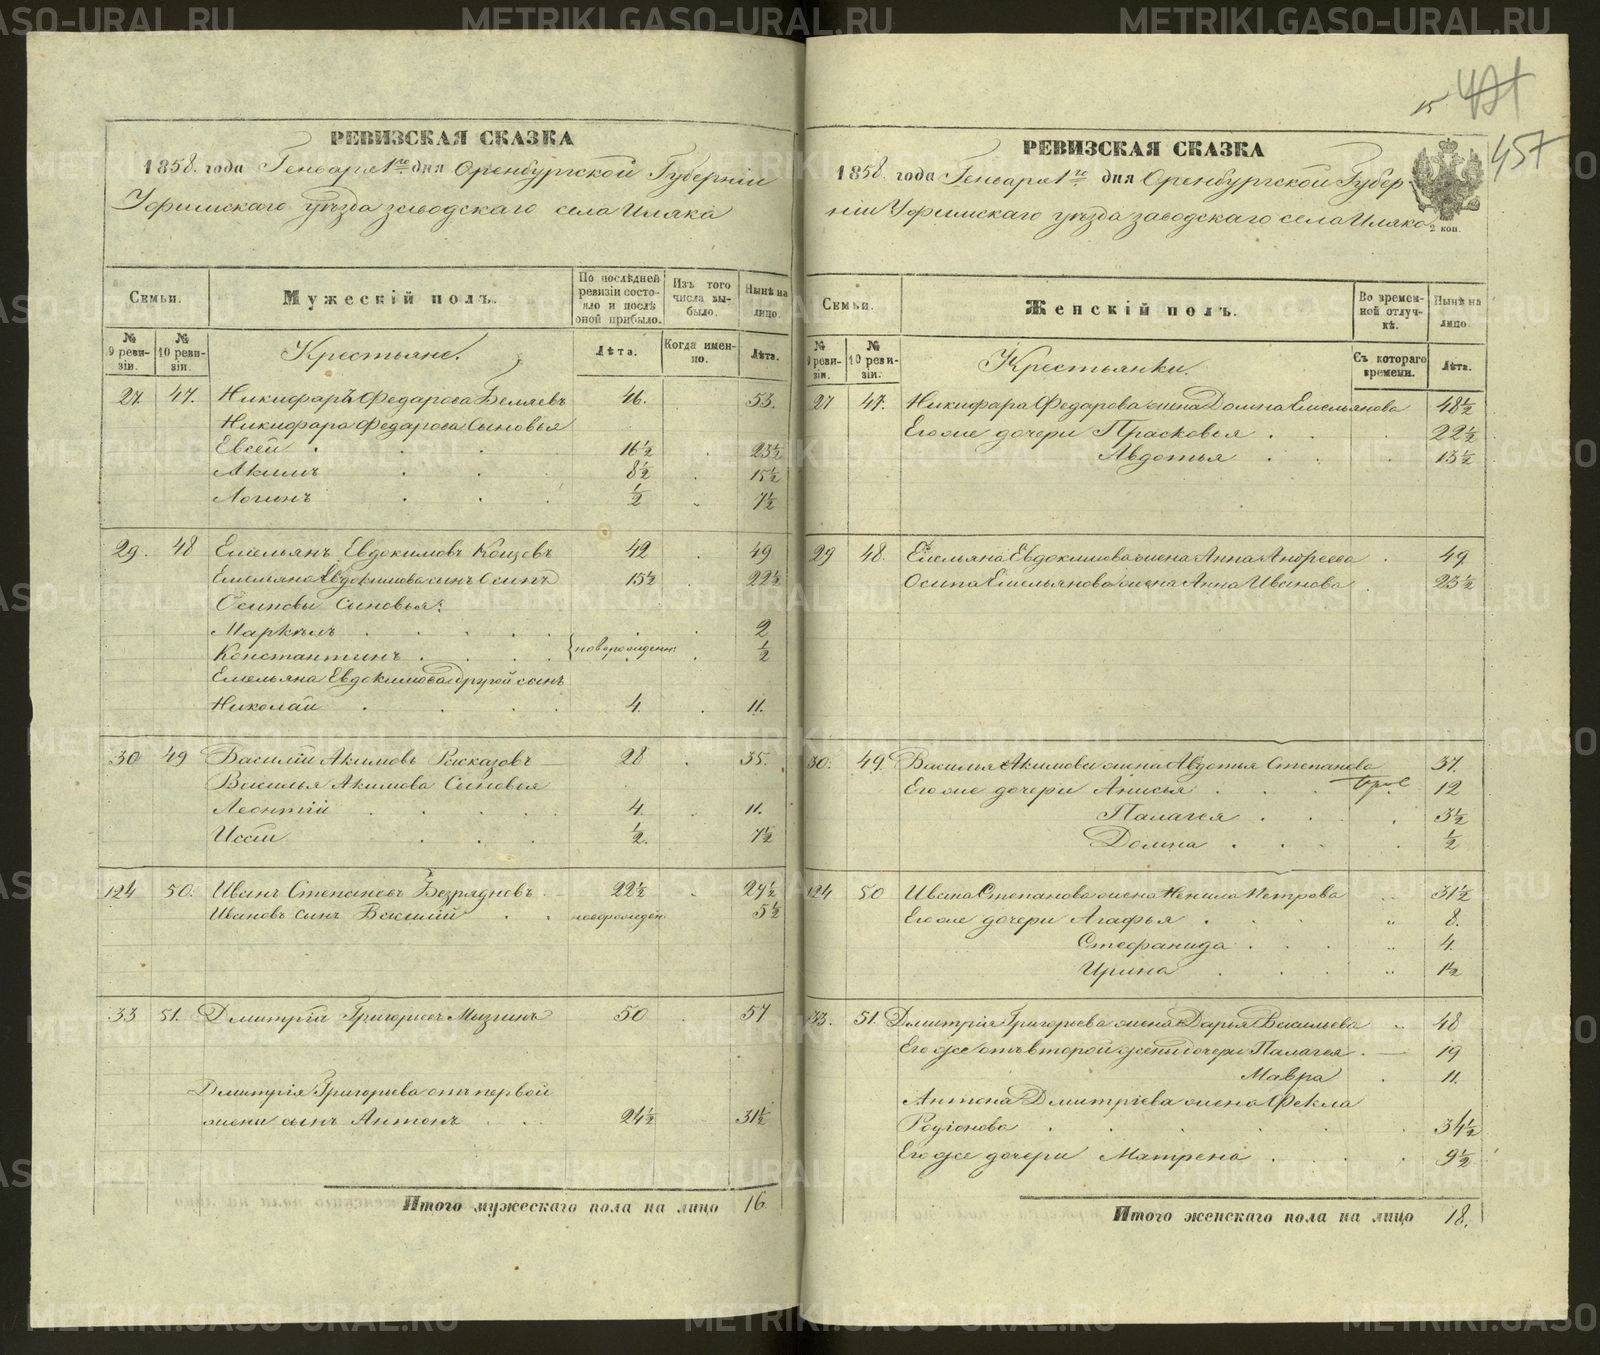 РЕВИЗСКАЯ СКАЗКА
1858. года Генваря 1го дня Оренбургской Губерніи
Уфимскаго уѣзда заводскаго села Иляка
Семьи.
Мужескій полъ.
По послѣдней ревизіи состояло и послѣ оной прибыло.
Изъ того числа выбыло.
Нынѣ на лицо.
№ 9 ревизіи.
№ 10 ревизіи.
Крестьяне.
Лѣта.
Когда именно.
Лѣта.
27. 47. Никифаръ Федарова Беляевъ 46. 53.
Никифара Федарова Сыновья
Евсей 16½ 23½
Акимъ 8½ 15½
Логинъ ½ 7½
29. 48 Емельянъ Евдокимовъ Концовъ 42 49
Емельяна Евдокимова сынъ Осипъ 15½ 22½
Осиповы сыновья:
Маркелъ 2
Константинъ новорожден: ½
Емельяна Евдокимова другой сынъ
Николай 4 11.
30 49 Василій Акимовъ Расказовъ 28 35.
Василья Акимова Сыновья
Леонтій 4 11.
Иссти ½. 7½
124 50. Иванъ Степановъ Безрядновъ 22½ 29½
Ивановъ сынъ Василій новорожден. 5½
33 51. Дмитрій Григорьевъ Мызгинъ 50 57
Дмитрія Григорьева отъ первой
жены сынъ Антонъ 24½ 31½
Итого мужескаго пола на лицо 16.
15
457
РЕВИЗСКАЯ СКАЗКА
1858. года Генваря 1го дня Оренбургской Губер-
ніи Уфимскаго уѣзда заводскаго села Иляка
2 коп.
Семьи.
Женскій полъ.
Во временной отлучкѣ.
Нынѣ на лицо.
№ 9 ревизіи.
№ 10 ревизіи.
Крестьянки.
Съ котораго времени.
Лѣта.
27 47. Никифара Федарова жена Домна Емельянова 48½
Его же дочери Прасковья 22½
Авдотья 13½
29 48. Емельяна Евдокимова жена Анна Андреева 49
Осипа Емельянова жена Анна Иванова 23½
30. 49. Василья Акимова жена Авдотья Степанова 37.
Его же дочери Анисья 12
Палагея 3½
Домна ½
124 50 Ивана Степанова жена Ненила Петрова 31½
Его же дочери Агафья 8.
Стефанида 4.
Ирина 1½
33. 51. Дмитрія Григорьева жена Дарья Васильева 48
Его же отъ второй жены дочери Палагея 19
Мавра 11.
Антона Дмитріева жена Фекла
Родіонова 34½
Его же дочери Матрена 9½
Итого женскаго пола на лицо 18.
METRIKI.GASO-URAL.RU